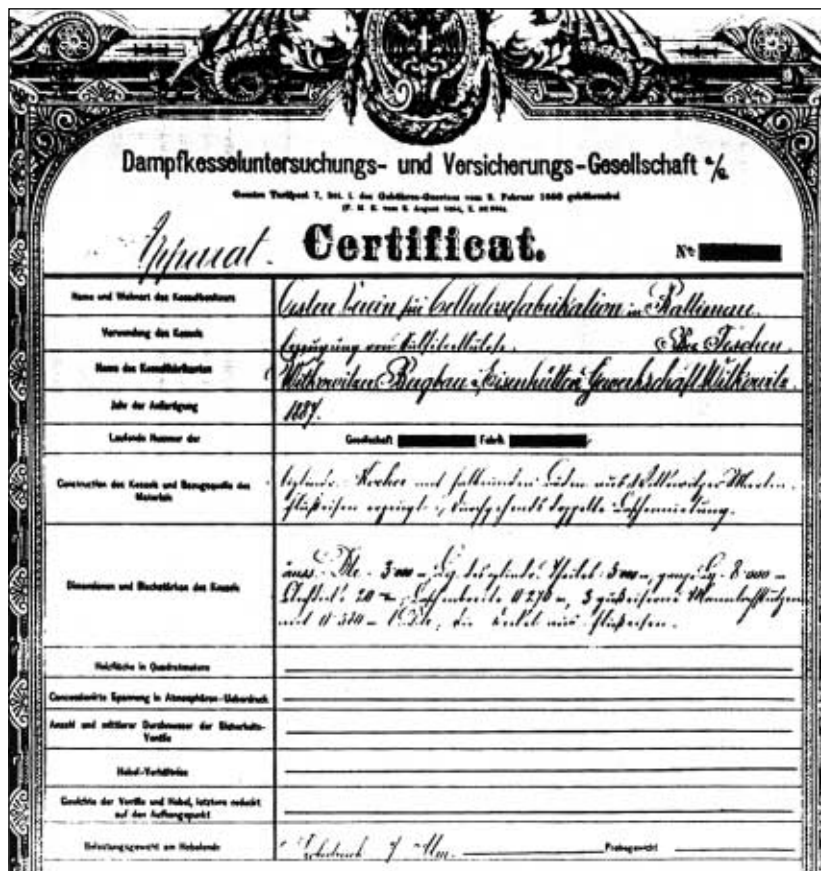 Dampfkesseluntersuchungs- und Versicherungs-Gesellschaft a/G.
Gemäss Tarifpost 7, lit. i. des Gebühren-Gesetzes vom 9. Februar 1850 gebührenfrei
Apparat. Certificat. No
Name und Wohnort des Kesselbesitzers
Ersten Verein für Cellulosefabrikation in Rattimau
Verwendung des Kessels
Erzeugung von Teschen.
Name des Kesselfabrikanten
Witkowitzer Bergbau u. Eisenhütten Gewerkschaft Witkowitz
Jahr der Anfertigung
1887.
Laufende Nummer der Gesellschaft Fabrik
Construction des Kessels und Bezugsquelle des Materials
cylindr. Kocher mit halbrunden Böden aus Witkowitzer Martin-
flußeisen erzeugt, durchgehends doppelte Laschennietung.
Dimensionen und Blechstärken des Kessels
äuss. 3·000 m, Lg. des cylindr. Theiles 5 m, ganze Lg. 8·000 m
20 Laschenbreite 0·270 m, 3 gußeiserne Mannlochstutzen
mit die Deckel aus Flußeisen.
Heizfläche in Quadratmetern
Concessionirte Spannung in Atmosphären-Ueberdruck
Anzahl und mittlerer Durchmesser der Sicherheits-Ventile
Hebel-Verhältnisse
Gewichte der Ventile und Hebel, letztere reducirt auf den Aufhangspunkt
Belastungsgewicht am Hebelende
7 Atm. Probegewicht